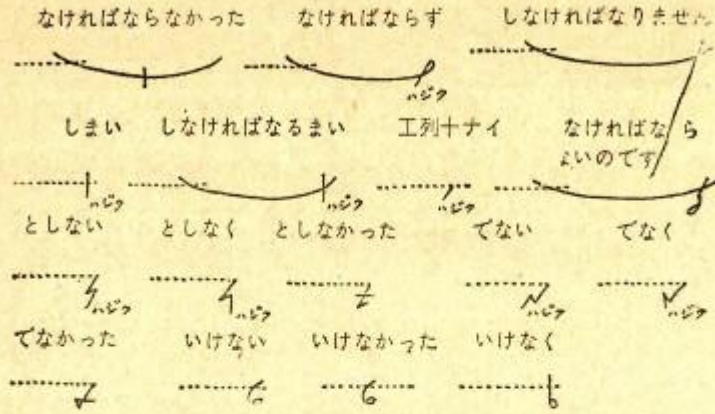 なければならなかった なければならず しなければなりません
ハジク
しまい しなければなるまい エ列十ナイ なければなら
ないのです
ハジク ハジク ハジク
としない としなく としなかった でない でなく
ハジク ハジク ハジク ハジク
でなかった いけない いけなかった いけなく